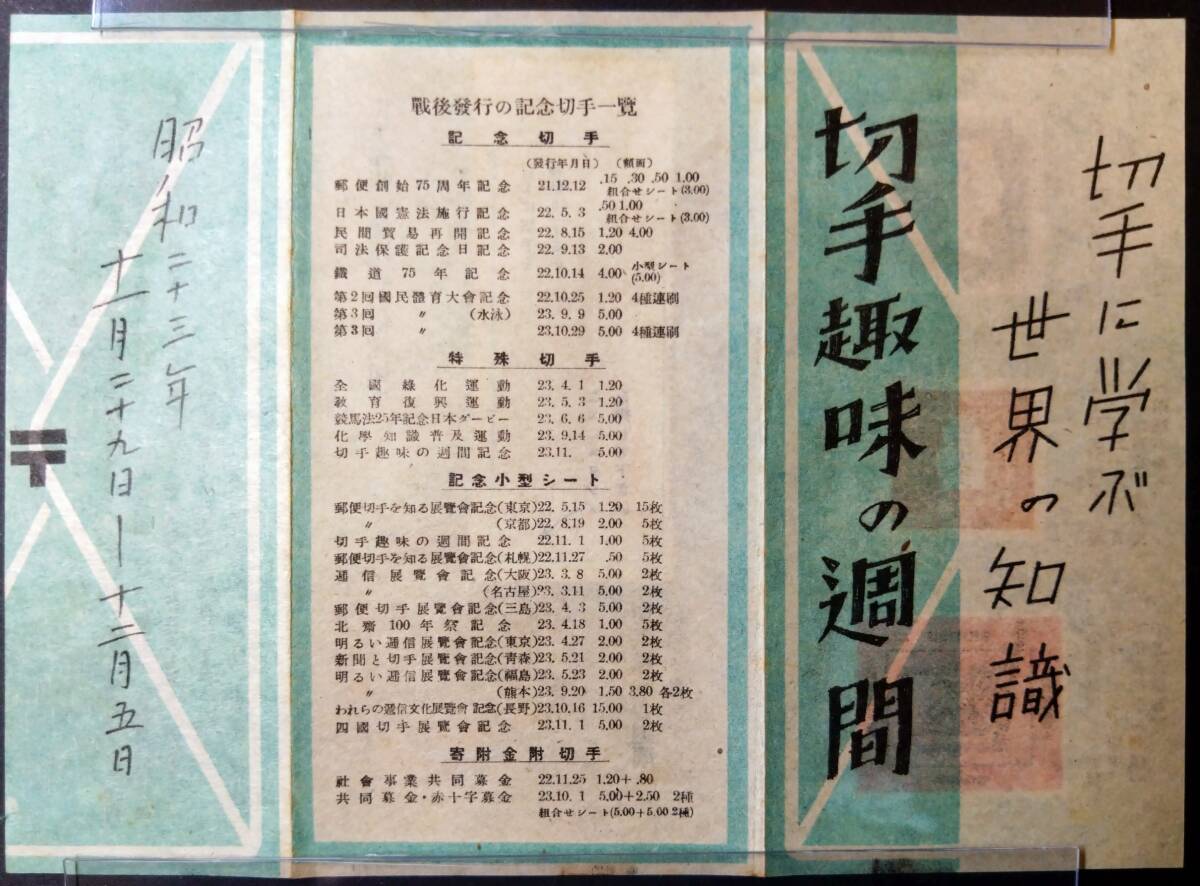 切手に学ぶ
世界の知識
切手趣味の週間
戰後發行の記念切手一覽
記念切手
(發行年月日) (額面)
郵便創始75周年記念 21.12.12 .15 .30 .50 1.00
組合せシート(3.00)
日本國憲法施行記念 22. 5. 3 .50 1.00
組合せシート(3.00)
民間貿易再開記念 22. 8.15 1.20 4.00
司法保護記念日記念 22. 9.13 2.00
鐵道75年記念 22.10.14 4.00 小型シート
(5.00)
第2回國民體育大會記念 22.10.25 1.20 4種連刷
第3回 〃 (水泳) 23. 9. 9 5.00
第3回 〃 23.10.29 5.00 4種連刷
特殊切手
全國綠化運動 23. 4. 1 1.20
敎育復興運動 23. 5. 3 1.20
競馬法25年記念日本ダービー 23. 6. 6 5.00
化學知識普及運動 23. 9.14 5.00
切手趣味の週間記念 23.11. 5.00
記念小型シート
郵便切手を知る展覽會記念(東京) 22. 5.15 1.20 15枚
〃 (京都) 22. 8.19 2.00 5枚
切手趣味の週間記念 22.11. 1 1.00 5枚
郵便切手を知る展覽會記念(札幌) 22.11.27 .50 5枚
逓信展覽會記念(大阪) 23. 3. 8 5.00 2枚
〃 (名古屋) 23. 3.11 5.00 2枚
郵便切手展覽會記念(三島) 23. 4. 3 5.00 2枚
北齋100年祭記念 23. 4.18 1.00 5枚
明るい逓信展覽會記念(東京) 23. 4.27 2.00 2枚
新聞と切手展覽會記念(靑森) 23. 5.21 2.00 2枚
明るい逓信展覽會記念(福島) 23. 5.23 2.00 2枚
〃 (熊本) 23. 9.20 1.50 3.80 各2枚
われらの逓信文化展覽會記念(長野) 23.10.16 15.00 1枚
四國切手展覽會記念 23.11. 1 5.00 2枚
寄附金附切手
社會事業共同募金 22.11.25 1.20+ .80
共同募金・赤十字募金 23.10. 1 5.00+2.50 2種
組合せシート(5.00+5.00 2種)
昭和二十三年
十一月二十九日—十二月五日
〒